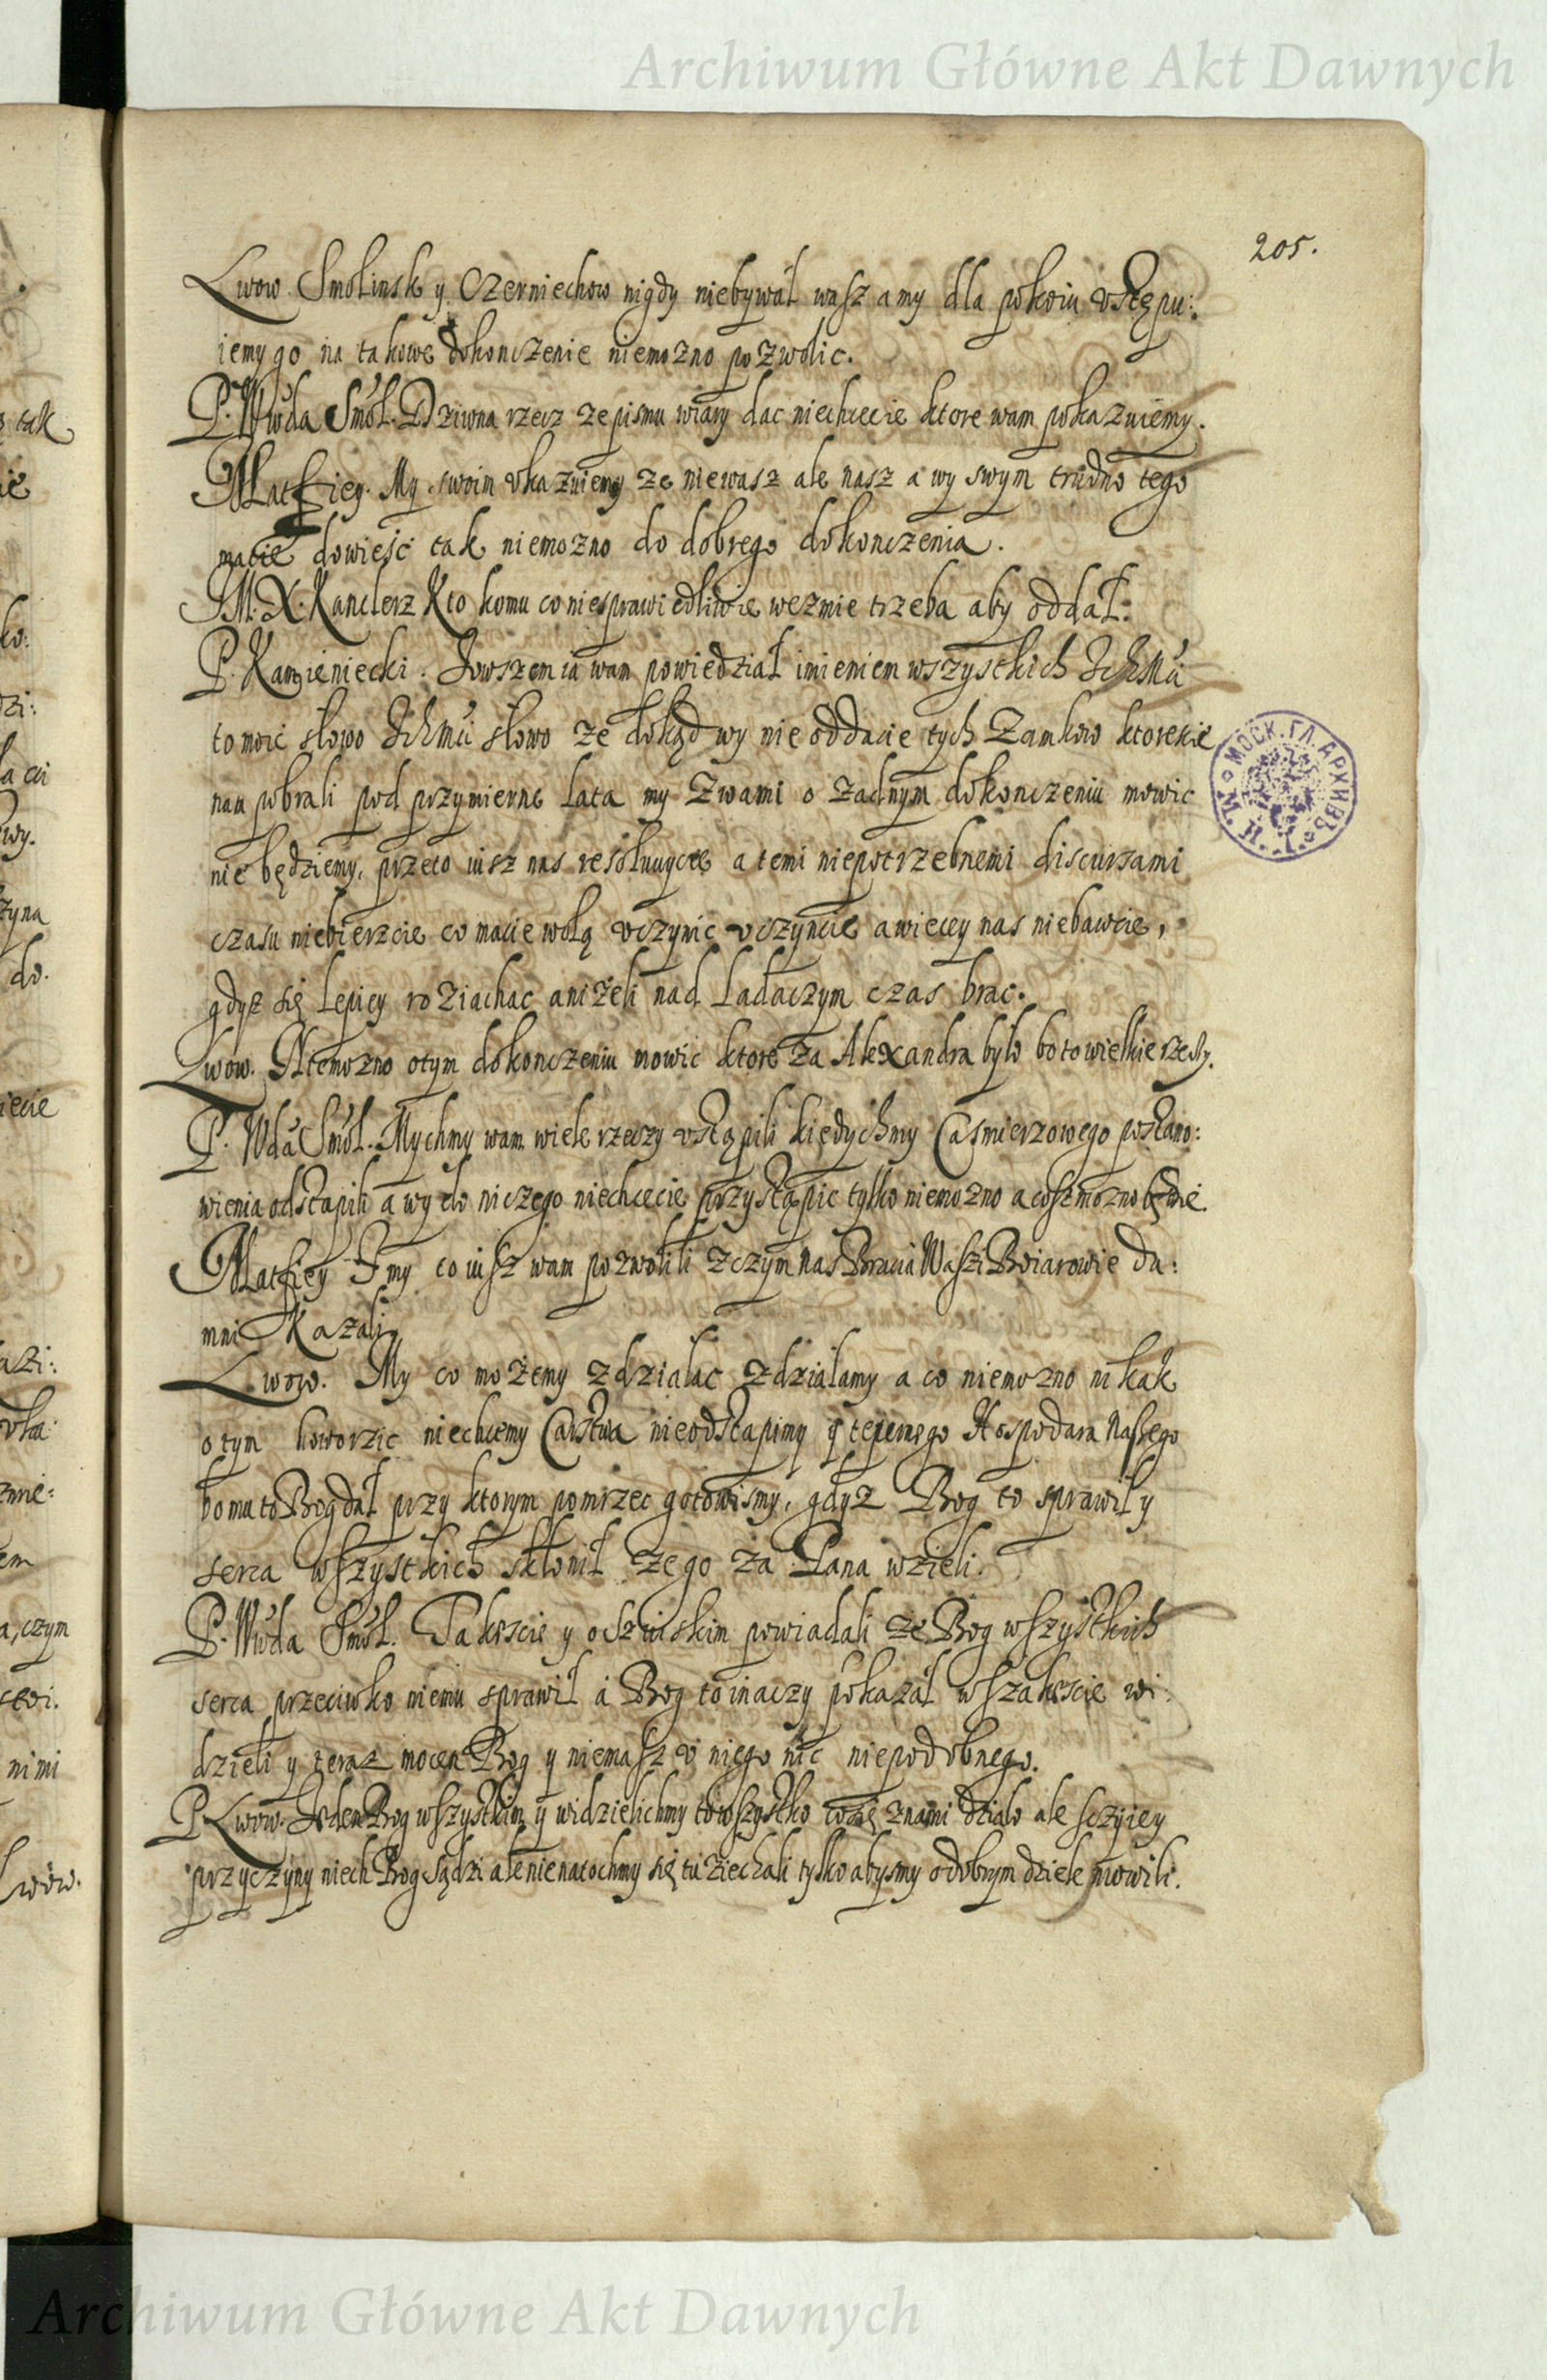 Archiwum Główne Akt Dawnych
205.
Lwow. Smolinsk y Czerniechow nigdy niebywał wasz a my dla pokoiu vstępu:
iemy go na takowe dokonczenie niemozno pozwolic.
P. Wwda Smol. Dziwna rzecz ze pismu wiary dac niechcecie ktore wam pokazuiemy.
Matfiey. My swoim vkazuiemy ze niewasz ale nasz a wy swym trudno tego
macie dowieść tak niemozno do dobrego dokonczenia.
JM. X. Kanclerz Kto komu co niesprawiedliwie wezmie trzeba aby oddał.
P. Kamieniecki. Jowszem ia wam powiedział imieniem wszystkich Ichmċi
to moie słowo Ichmċi słowo ze dokąd wy nie oddacie tych Zamkow ktorescie
nam pobrali pod przymierne lata my z wami o zadnym dokonczeniu mowic
nie będziemy, przeto iusz nas resoluuycie a temi niepotrzebnemi discursami
czasu niebierzcie co macie wolą vczynic vczyncie a wiecey nas niebawcie,
gdysz się lepiey roziachac aniżeli nad ladaczym czas brac.
Lwow. Niemozno o tym dokonczeniu mowic ktore za Alexandra było bo to wielkie rzeczy.
P. Wda Smol. Mychmy wam wiele rzeczy vstąpili kiedychmy Casmierzowego postano:
wienia odstąpili a wy do niczego niechcecie przystąpic tylko niemozno a cosz mozno będzie.
Matfiey I my co iusz wam pozwolili z czym nas Bracia Waszi Boiarowie du:
mni Kazali.
Lwow. My co możemy zdziałac zdziałamy a co niemozno nikak
o tym howorzic niechcemy Carstwa nieodstąpimy y tepernego Hospodara Naszego
bo mu to Bog dał przy ktorym pomrzec gotowismy, gdyz Bog to sprawił y
serca wszystkich skłonił ze go za Pana wzieli.
P. Wwda Smol. Takescie y o Szuiskim powiadali ze Bog wszystkich
serca przeciwko niemu sprawił a Bog to inaczy pokazał wszakescie wi:
dzieli y teraz mocen Bog y niemasz v niego nic niepodobnego.
P Lwow. Jeden Bog wszystkim y widzielichmy to wszystko co się z nami działo ale s czyiey
przyczyny niech Bog sądzi ale nie na tochmy się tu ziechali tylko abysmy o dobrym dziele mowili.
Archiwum Główne Akt Dawnych